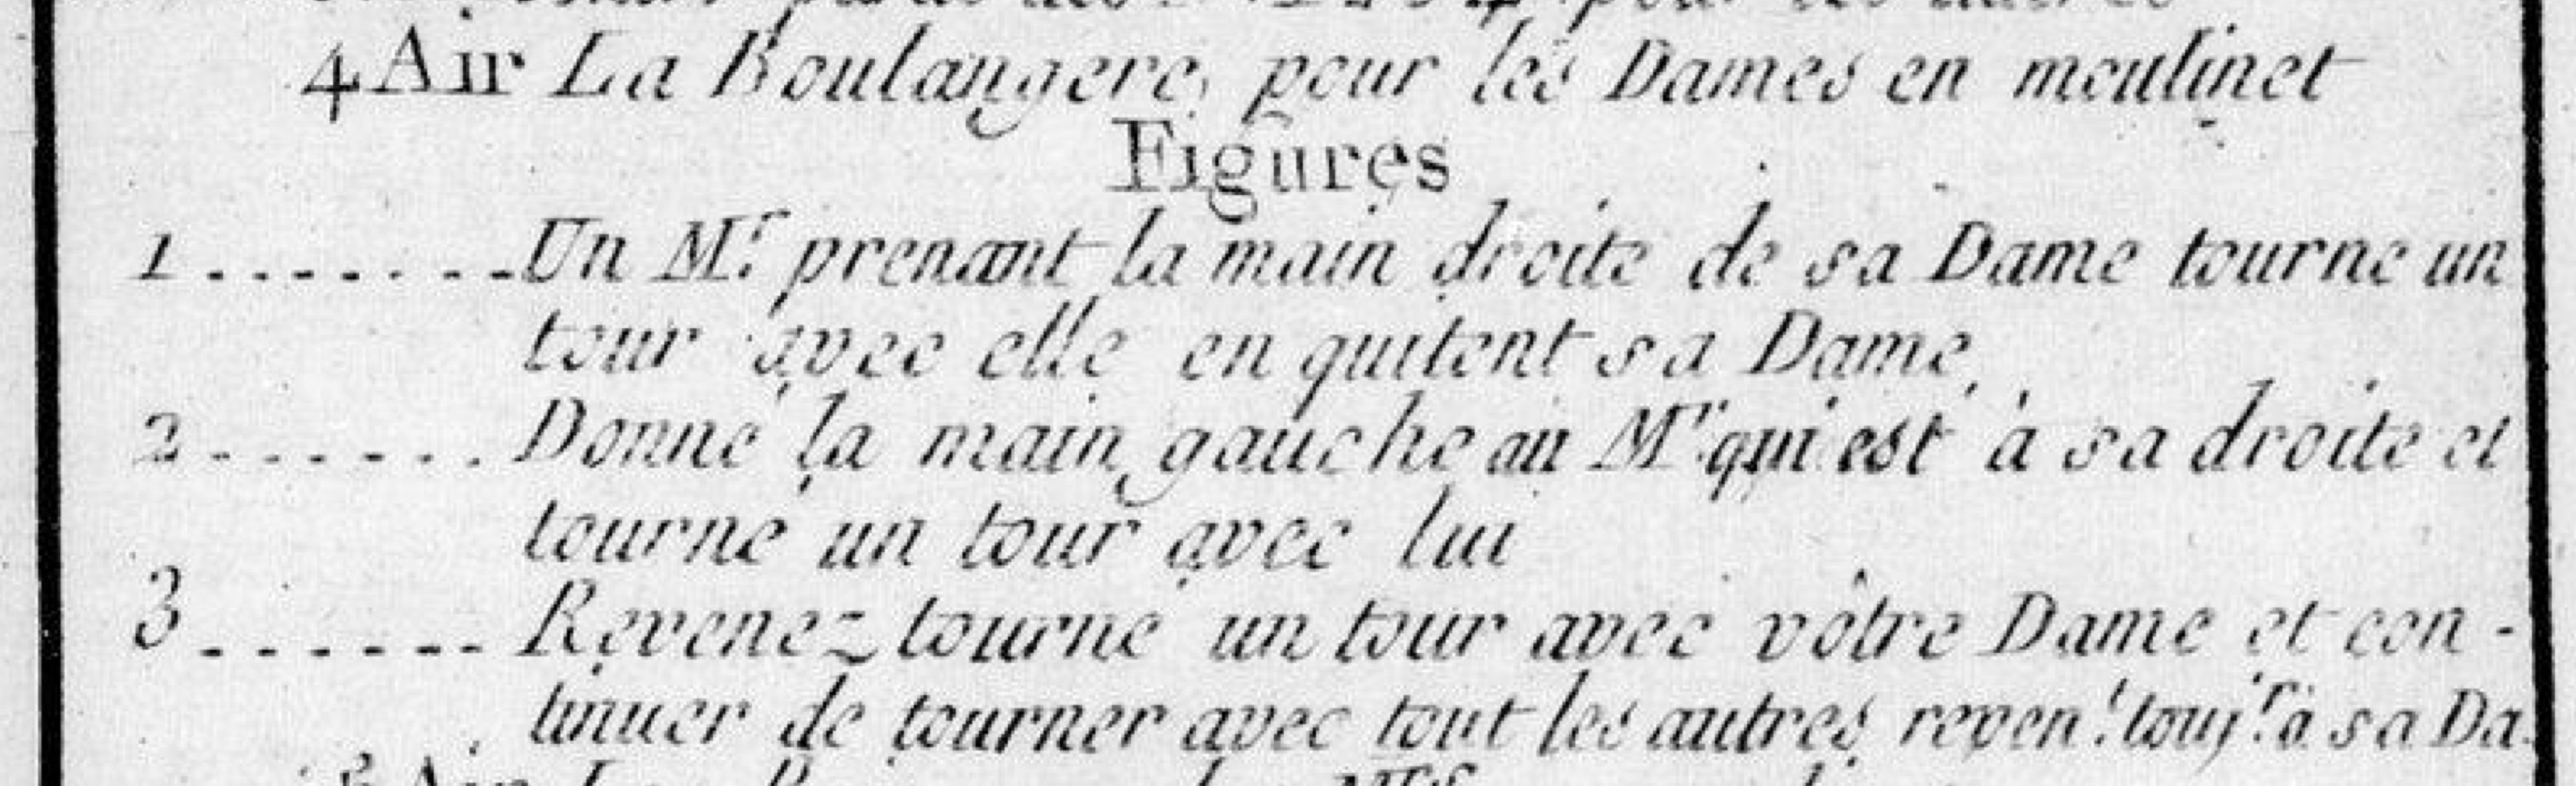 pour les autres
4 Air La Boulangere, pour les Dames en moulinet
Figures
1 ........ Un Mr. prenant la main droite de sa Dame tourne un
tour avec elle en quitent sa Dame,
2 ....... Donné la main gauche au Mr. qui est à sa droite et
tourné un tour avec lui
3 ....... Revenez tourné un tour avec vôtre Dame et con-
tinuer de tourner avec tout les autres reven.t touj.rs à sa Da.